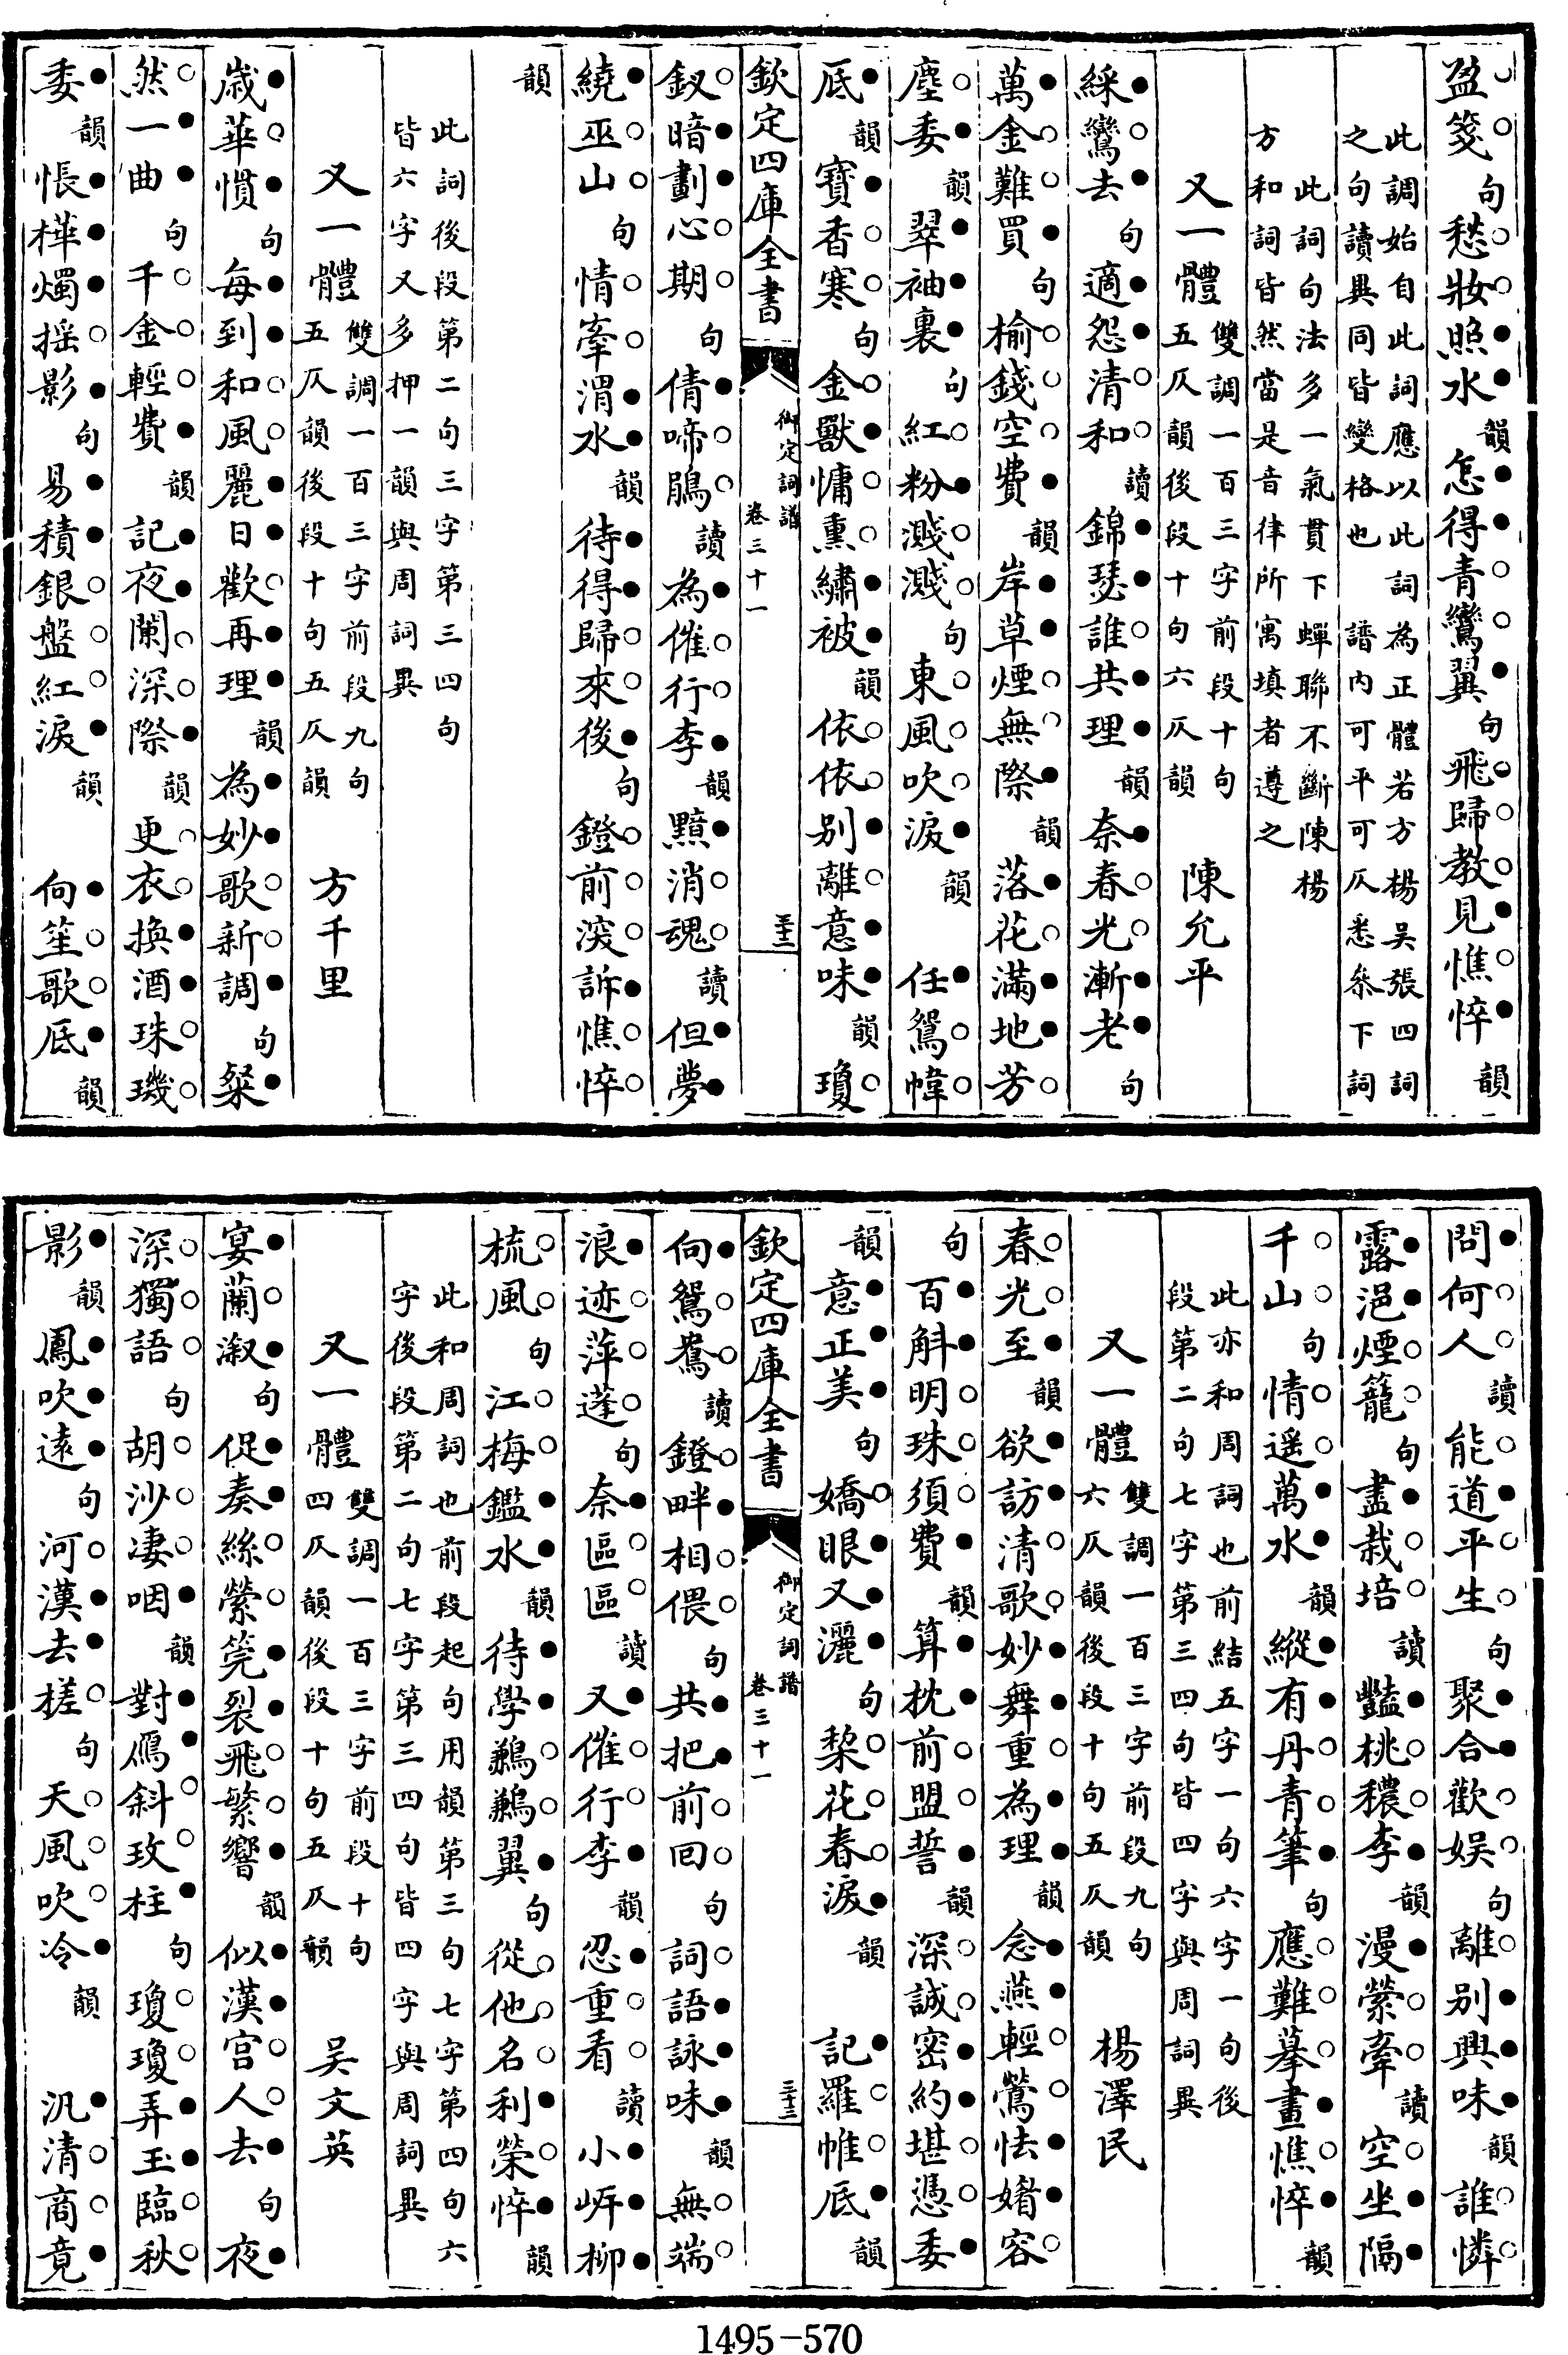 盈箋句愁妝照水韻怎得青鸞翼句飛歸教見憔悴韻
此調始自此詞應以此詞為正體若方楊吳張四詞
之句讀異同皆變格也　譜內可平可仄悉叅下詞
此詞句法多一氣貫下蟬聯不斷陳楊
方和詞皆然當是音律所寓填者遵之
又一體雙調一百三字前段十句
五仄韻後段十句六仄韻　陳允平
綵鸞去句適怨清和讀錦瑟誰共理韻奈春光漸老句
萬金難買句榆錢空費韻岸草煙無際韻落花滿地芳
塵委韻翠袖裏句紅粉濺濺句東風吹淚韻　任鴛幃
底韻寶香寒句金獸慵熏繡被韻依依別離意味韻瓊
欽定四庫全書　御定詞譜　卷三十一　三十二
釵暗劃心期句倩啼鵑讀為催行李韻黯消魂讀但夢
繞巫山句情牽渭水韻待得歸來後句鐙前深訴憔悴
韻
此詞後段第二句三字第三四句
皆六字又多押一韻與周詞異
又一體雙調一百三字前段九句
五仄韻後段十句五仄韻　方千里
歲華慣句每到和風麗日歡再理韻為妙歌新調句粲
然一曲句千金輕費韻記夜闌深際韻更衣換酒珠璣
委韻悵樺燭搖影句易積銀盤紅淚韻　向笙歌底韻
問何人讀能道平生句聚合歡娛句離別興味韻誰憐
露浥煙籠句盡栽培讀豔桃穠李韻漫縈牽讀空坐隔
千山句情遥萬水韻縱有丹青筆句應難摹畫憔悴韻
此亦和周詞也前結五字一句六字一句後
段第二句七字第三四句皆四字與周詞異
又一體雙調一百三字前段九句
六仄韻後段十句五仄韻　楊澤民
春光至韻欲訪清歌妙舞重為理韻念燕輕鶯怯媠容
句百斛明珠須費韻算枕前盟誓韻深誠密約堪憑委
韻意正美句嬌眼又灑句棃花春淚韻　記羅帷底韻
欽定四庫全書　御定詞譜　卷三十一　三十三
向鴛鴦讀鐙畔相偎句共把前回句詞語詠味韻無端
浪迹萍蓬句奈區區讀又催行李韻忍重看讀小岍柳
梳風句江梅鑑水韻待學鶼鶼翼句從他名利榮悴韻
此和周詞也前段起句用韻第三句七字第四句六
字後段第二句七字第三四句皆四字與周詞異
又一體雙調一百三字前段十句
四仄韻後段十句五仄韻　吳文英
宴蘭漵句促奏絲縈筦裂飛繁響韻似漢宮人去句夜
深獨語句胡沙淒咽韻對鴈斜玫柱句瓊瓊弄玉臨秋
影韻鳳吹遠句河漢去槎句天風吹冷韻　汎清商竟
1495-570